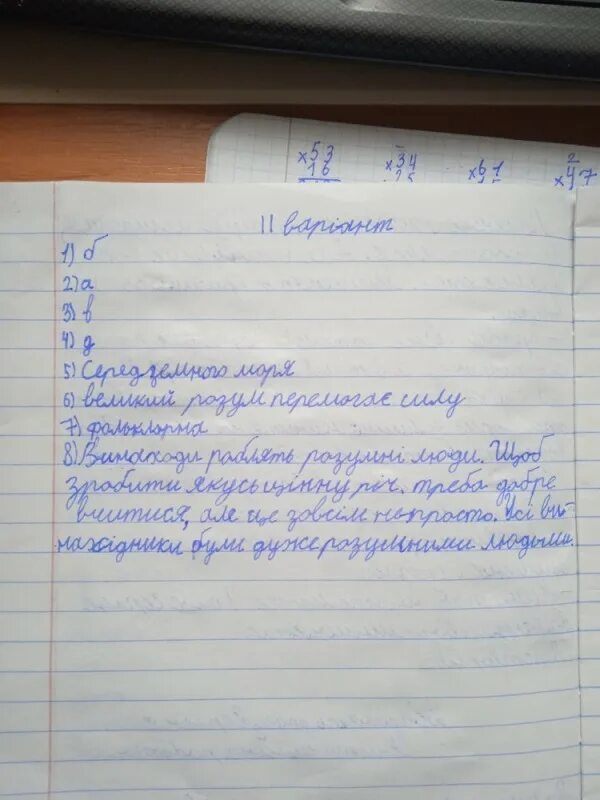 х53 х34 х61 2
16 х47
II варіант
1) б
2) а
3) в
4) д
5) Середземного моря
6) великий розум перемогає силу
7) фольклорна
8) Винаходи раблять розумні люди. Щоб
зрабити якусь цінну річ, треба дабре
вчитися, але це зовсім напросто. Усі ви-
нахідники були дуже розумними людьми.